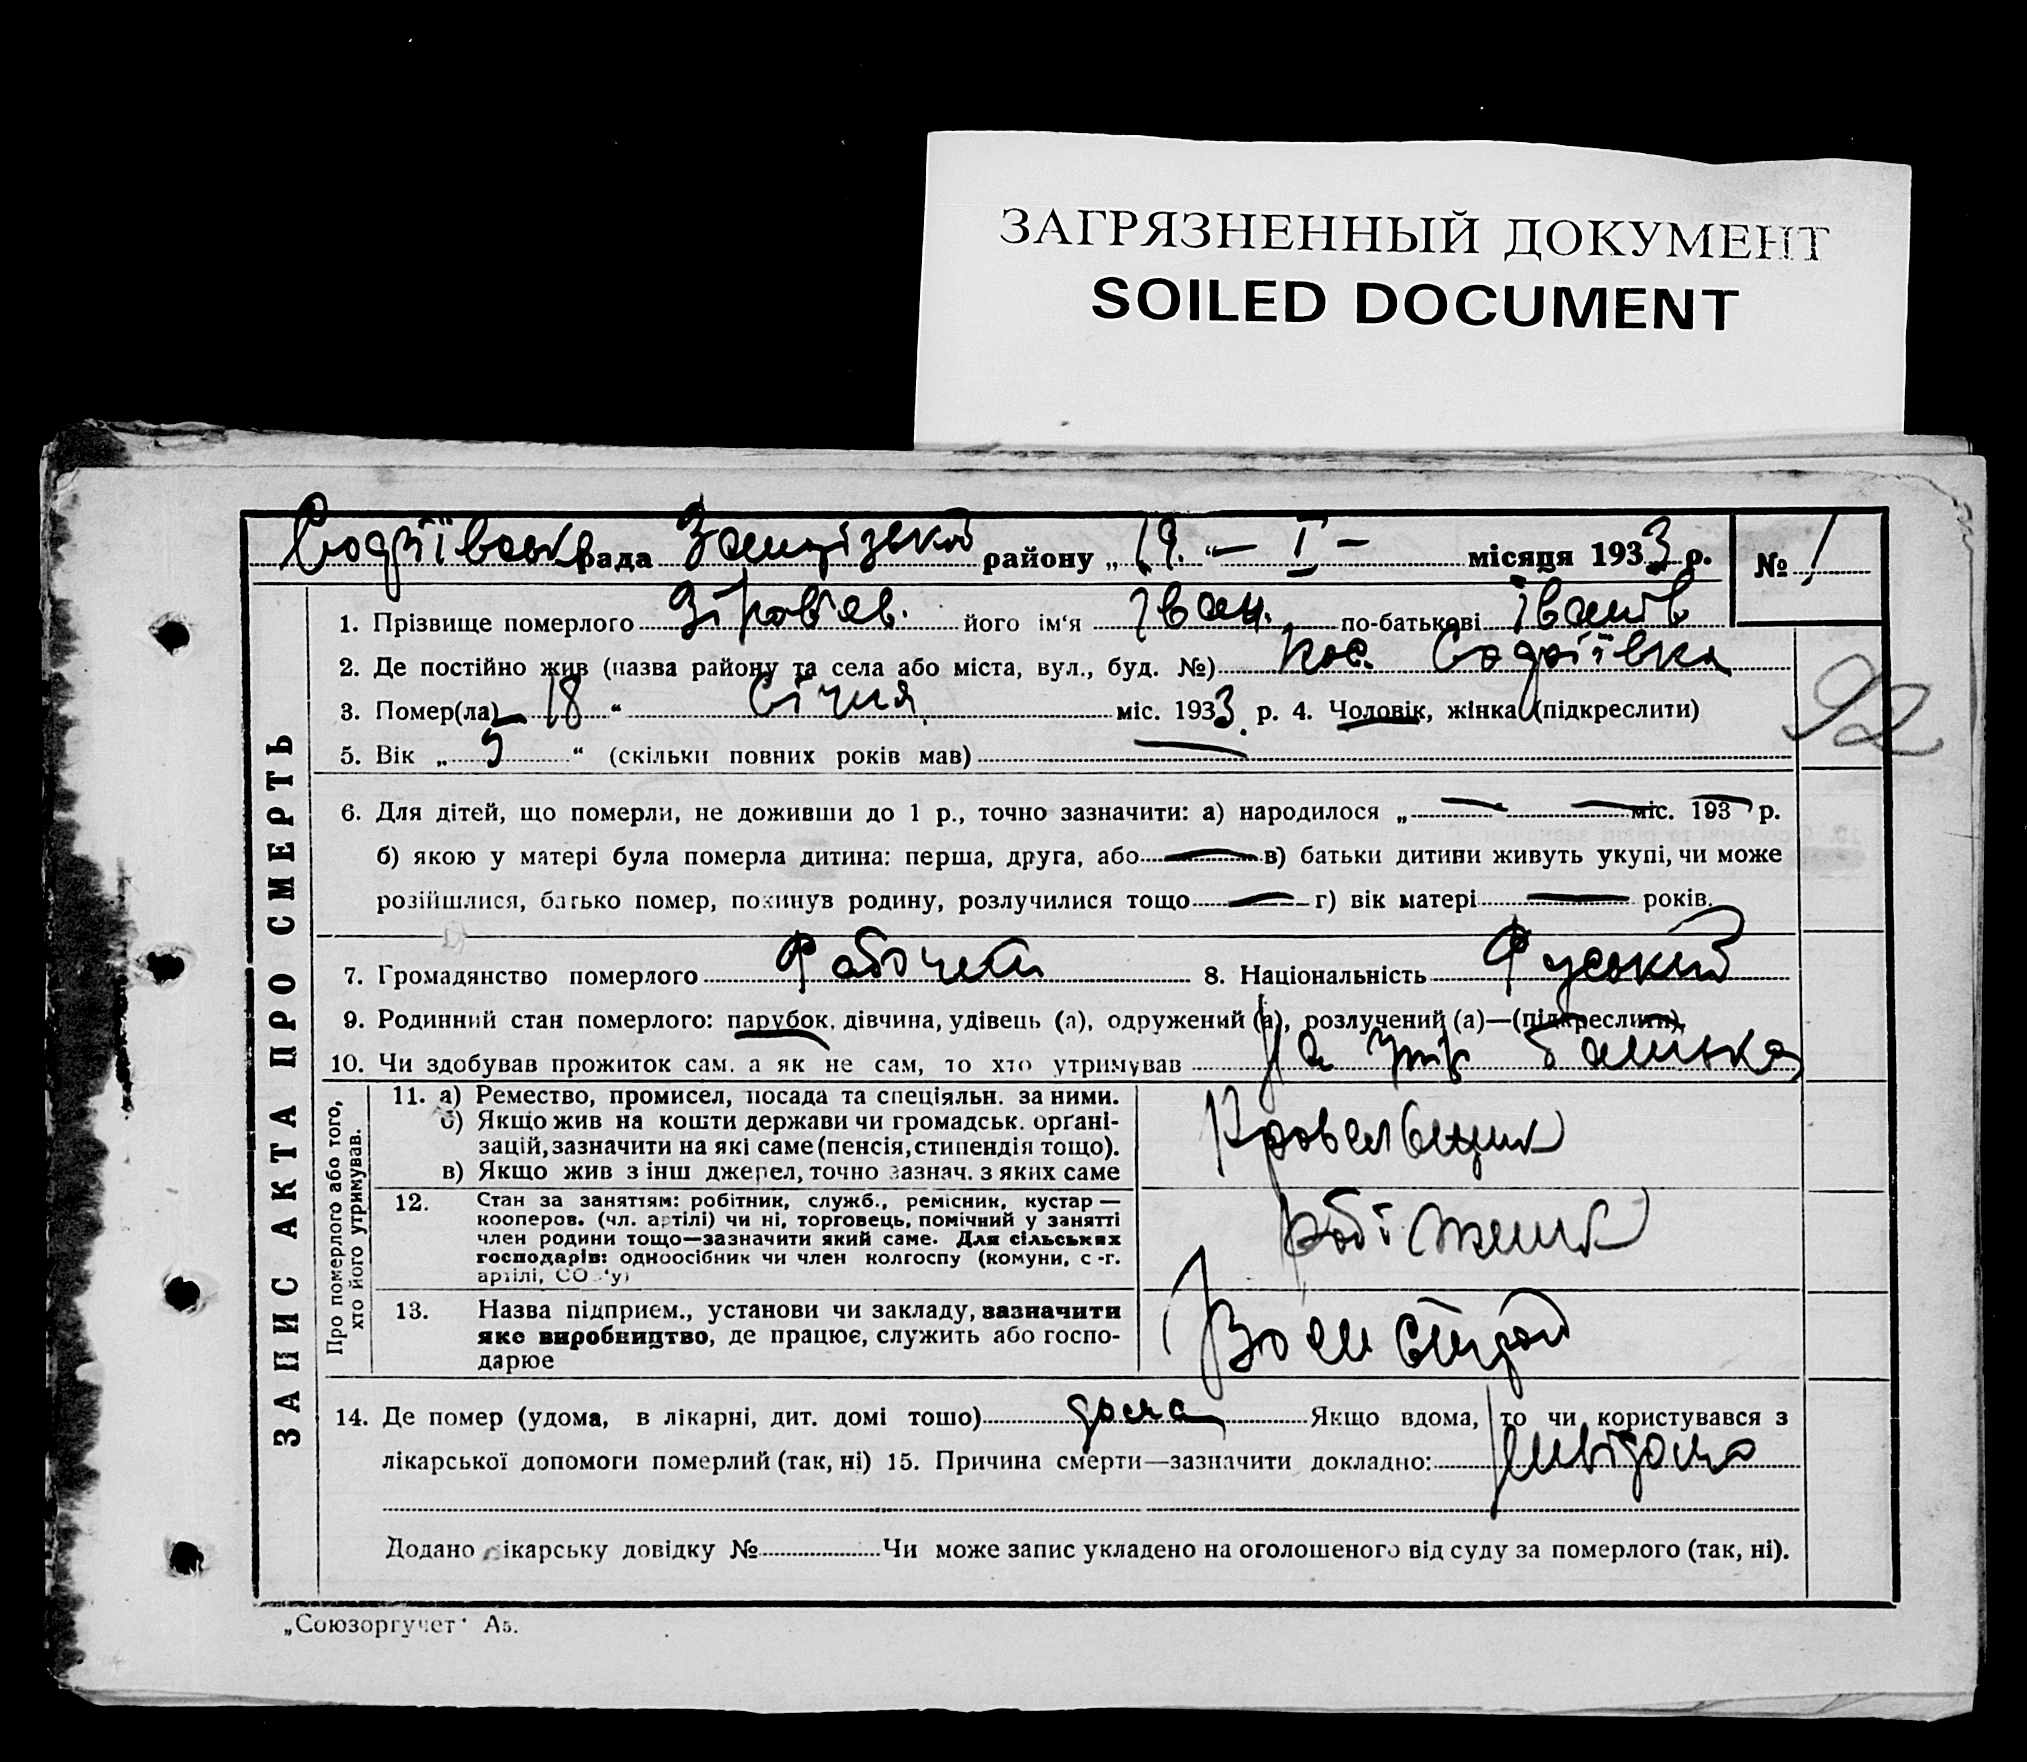 ЗАГРЯЗНЕННЫЙ ДОКУМЕНТ
SOILED DOCUMENT
рада району „19.“ — I — місяця 1933 р. № 1
1. Прізвище померлого його ім'я Іван. по-батькові Іванов
2. Де постійно жив (назва району та села або міста, вул., буд. №) пос. Софіївка
3. Помер(ла) 18 “ Січня міс. 1933 р. 4. Чоловік, жінка (підкреслити)
92
5. Вік „ 5 “ (скільки повних років мав)
6. Для дітей, що померли, не доживши до 1 р., точно зазначити: а) народилося „ міс. 193 р.
б) якою у матері була померла дитина: перша, друга, або в) батьки дитини живуть укупі, чи може
розійшлися, батько помер, покинув родину, розлучилися тощо г) вік матері років.
7. Громадянство померлого 8. Національність Руський
9. Родинний стан померлого: парубок, дівчина, удівець (а), одружений (а), розлучений (а)—(підкреслити).
10. Чи здобував прожиток сам, а як не сам, то хто утримував На утр батька
Про померлого або того,
хто його утримував.
11. а) Ремество, промисел, посада та спеціяльн. за ними.
б) Якщо жив на кошти держави чи громадськ. орґані-
зацій, зазначити на які саме (пенсія, стипендія тощо).
в) Якщо жив з інш джерел, точно зазнач. з яких саме
Кровельщик
12. Стан за заняттям: робітник, служб., ремісник, кустар —
кооперов. (чл. артілі) чи ні, торговець, помічний у занятті
член родини тощо—зазначити який саме. Для сільських
господарів: одноосібник чи член колгоспу (комуни, с.-г.
артілі, СО у)
робітник
13. Назва підприєм., установи чи закладу, зазначити
яке виробництво, де працює, служить або госпо-
дарює
14. Де помер (удома, в лікарні, дит. домі тошо) дома Якщо вдома, то чи користувався з
лікарської допомоги померлий (так, ні) 15. Причина смерти—зазначити докладно: невідомо
Додано лікарську довідку № Чи може запис укладено на оголошеного від суду за померлого (так, ні).
ЗАПИС АКТА ПРО СМЕРТЬ
„Союзоргучет" А5.